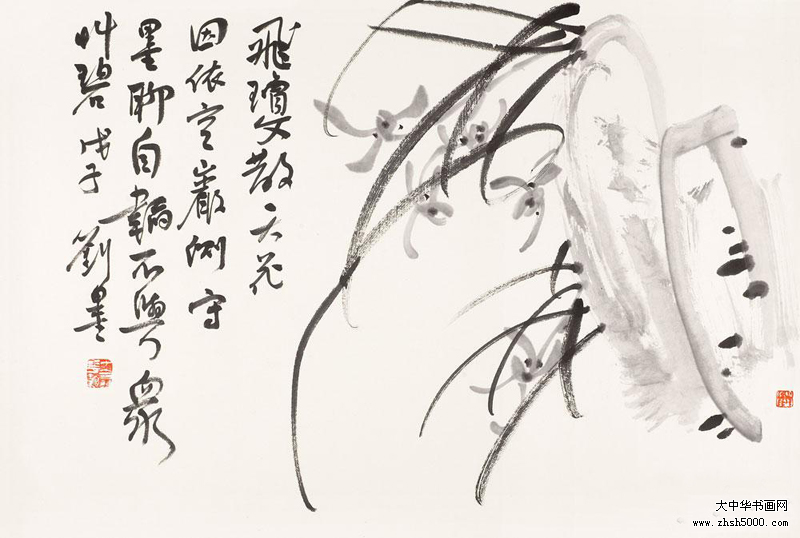 飛瓊女散天花
因依空巖側守
墨聊自韜不與眾
艸碧戊子劉墨
大中华书画网
www.zhsh5000.com